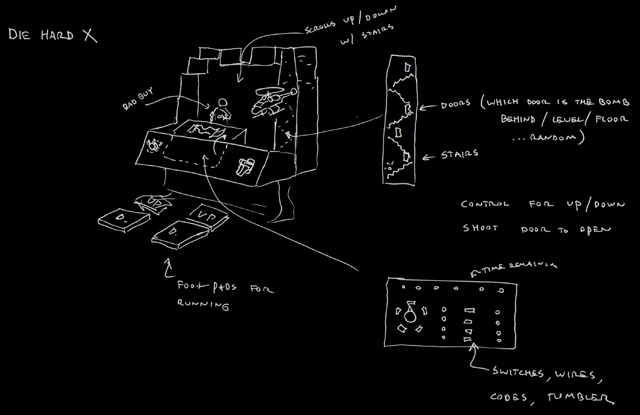 DIE HARD X
SCROLLS UP/DOWN
W/ STAIRS
BAD GUY
DOORS (WHICH DOOR IS THE BOMB
BEHIND/LEVEL/FLOOR
...RANDOM)
STAIRS
CONTROL FOR UP/DOWN
SHOOT DOOR TO OPEN
UP
D.
D.
FOOT PADS FOR
RUNNING
TIME REMAINING
SWITCHES, WIRES,
CODES, TUMBLER